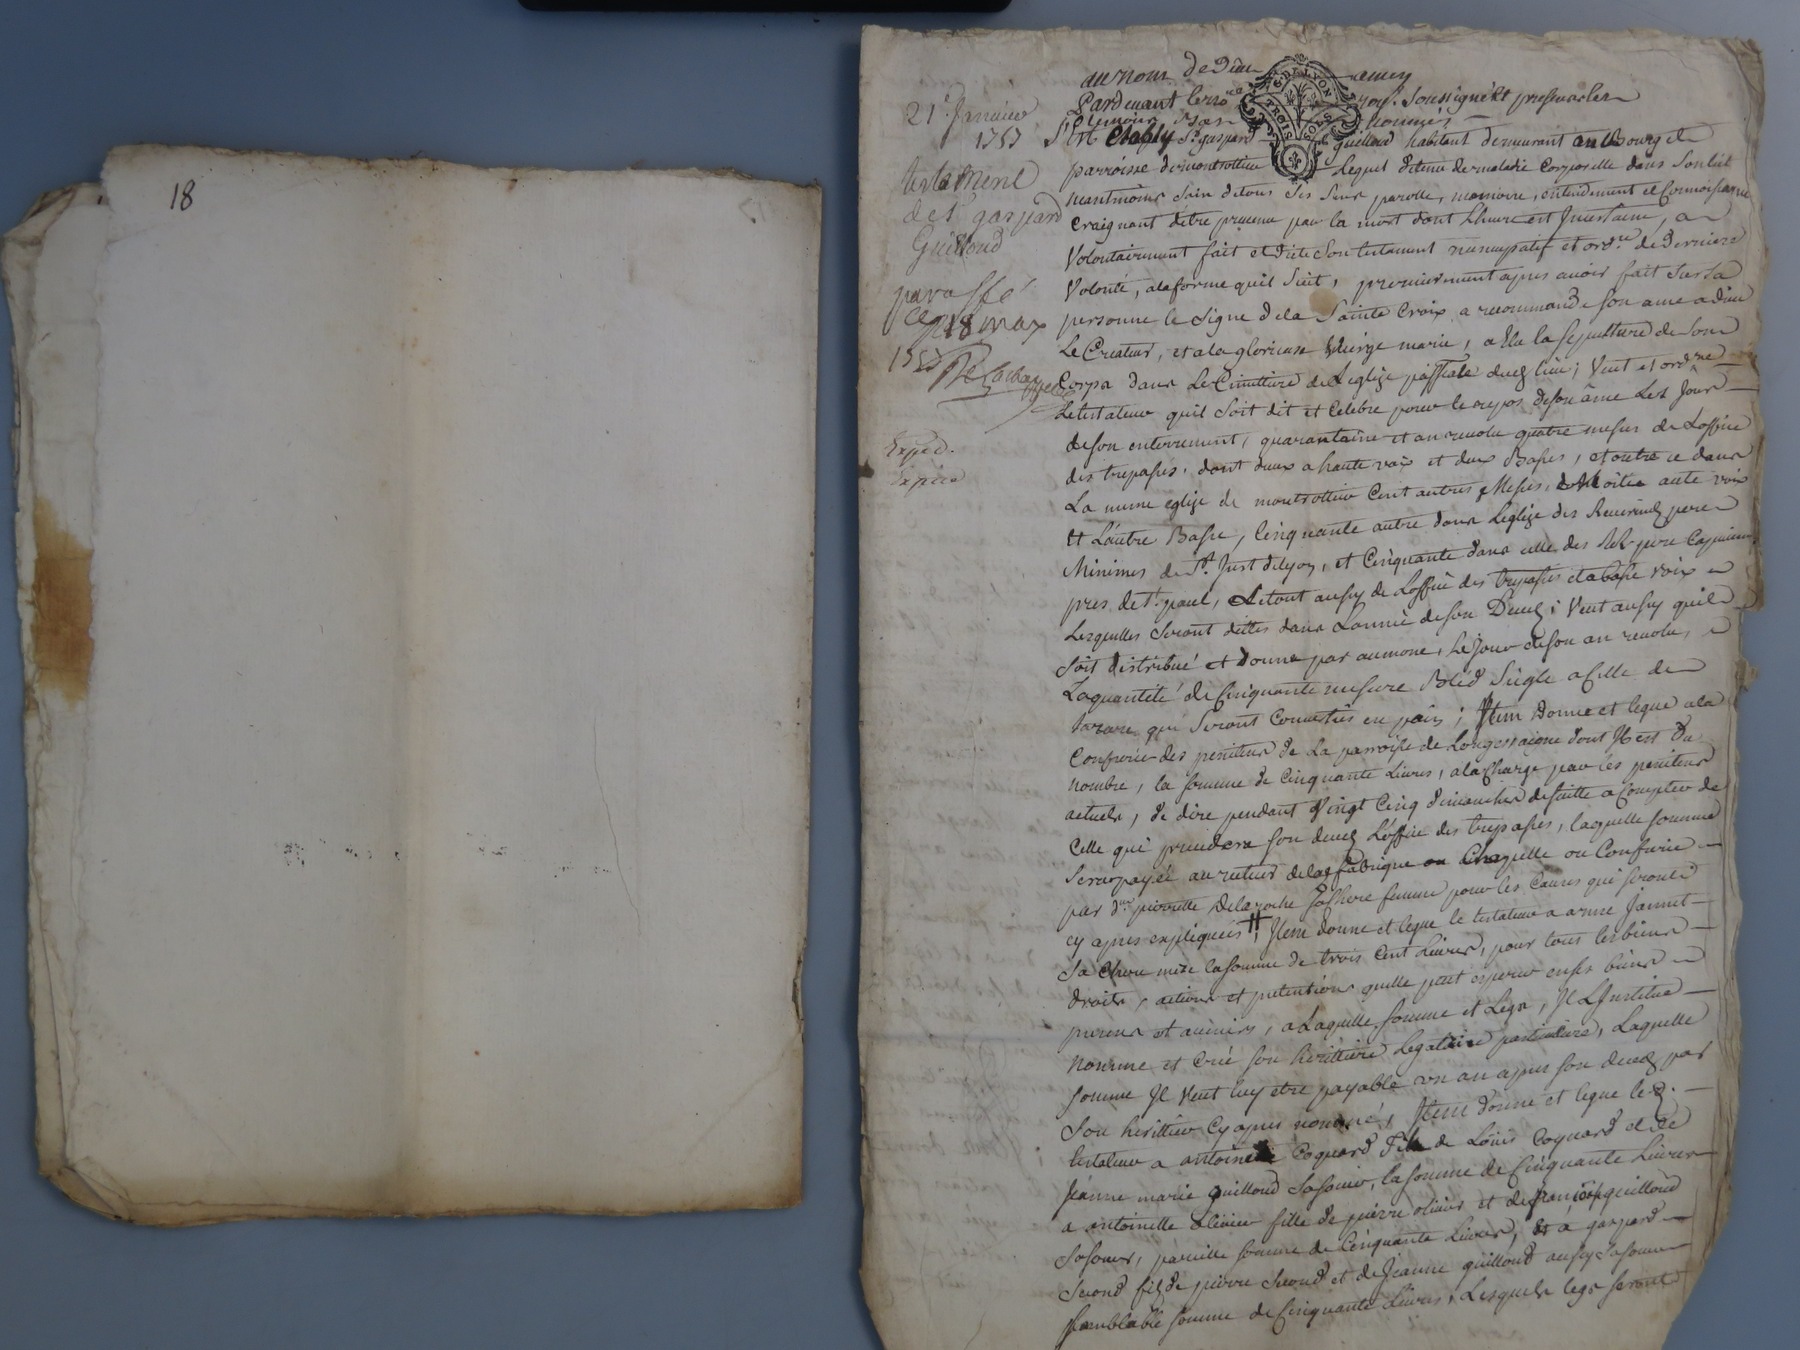 18
21e Janvier
1757
testament
de sr gaspard
Guilloud
paraffé
ce 18 may
1757
Exped.
Expedié
GEN. DE LYON
TROIS SOLS
au nom de Dieu amen
Pardevant le no.re roy.l soussigné et presence des
temoins nommés
S'est etably Sr gaspard guilloud habitant demeurant au Bourg et
parroisse de montrottier lequel detenu de maladie corporelle dans son lict
neantmoins sain de tous ses sens parolle, memoire, entendement et connoissance
craignant detre prevenu par la mort dont l'heure est Incertaine, a
volontairement fait et dicté son testament nuncupatif et ord.re de derniere
volonté, a la forme quil suit, premierement apres avoir fait sur sa
personne le signe de la sainte Croix, a recommandé son ame a dieu
Le Createur, et a la glorieuse vierge marie, a Elu la sepulture de son
Corps dans Le Cimettiere de L'eglize du lieu; Veut et ord.ne
Le testateur quil soit dit et Celebré pour le repos de son âme Les Jour
de son enterrement, quarantaine et an revolu quatre messes de Loffice
des trepassés, dont deux a haute voix et deux Basses, et outre ce dans
La meme eglize de montrottier Cent autres Messes, de Moitié aute voix
Et L'autre Basse, Cinquante autre dans Leglize des Reverends peres
Minimes de St. Just de lyon, et Cinquante dans celle des Rds peres Capucins
pres de St. paul, Le tout aussy de Loffice des trepassés et a basse voix
Lesquelles seront dittes dans Lannée de son Deceds; Veut aussy quil
soit distribué et donné par aumone, Le jour de son an revolu,
La quantité de Cinquante mesure Bled Siegle de
tarare qui seront Convertis en pain; Item donne et legue a la
Confrerie des penitens de La parroisse de Longessaigne dont Il est du
nombre, la somme de Cinquante Livres, a la Charge par les penitens
actuels, de dire pendant vingt Cinq dimanches de suitte a Compter de
Celle qui son deceds L'office des trepassés, laquelle somme
sera payée au recteur de la fabrique ou Chapelle ou Confrerie
par d.lle pierrette Delaroche sa Chere femme pour les Causes qui seront
cy apres expliquées, Item donne et legue le testateur a anne Jannet
sa Chere mere la somme de trois Cent Livres, pour tous les biens
droits, actions et pretentions quelle peut esperer en ses biens
presens et avenirs, a Laquelle somme et Legs, Il L'Institue
nomme et Creé son herittiere Legataire particuliere, Laquelle
somme Il Veut luy etre payable un an apres son deceds par
son herittier Cy apres nommé, Item donne et legue led.
testateur a Coquard de Loüis Coquard et de
Jeanne marie guilloud sa soeur, la somme de Cinquante Livres
a antoinette olivier fille de pierre olivier et de françoise guilloud
sa soeur, pareille somme de Cinquante Livres, Et a gaspard
second fils de pierre Second et de Jeanne guilloud aussy sa soeur
semblable somme de Cinquante Livres, Lesquels legs seront